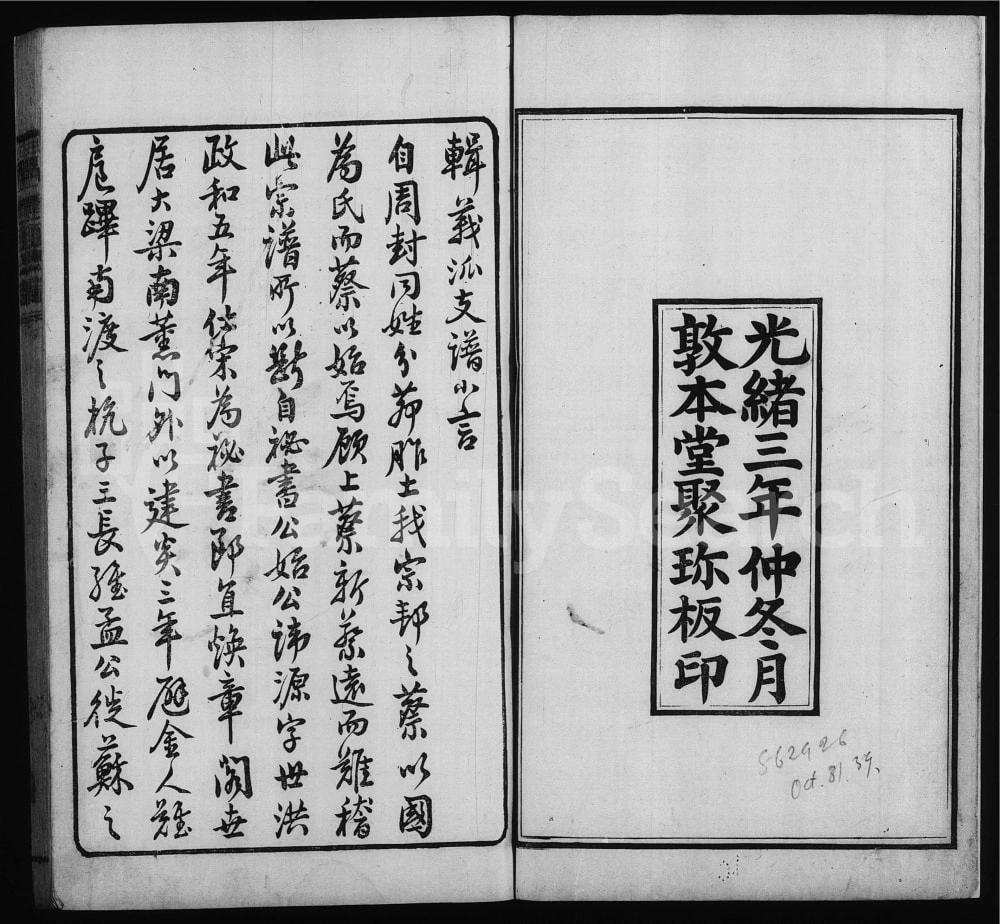 光緒三年仲冬月
敦本堂聚珍板印
562926
Oct. 31. 39.
輯義派支譜小言
自周封同姓分茆胙土我宗邦之蔡以國
為氏而蔡以始焉顧上蔡新蔡遠而難稽
此宗譜所以斷自祕書公始公諱源字世洪
政和五年仕宋為祕書郎直煥章閣世
居大梁南薰門外以建炎三年避金人難
扈蹕南渡之杭子三長維孟公徙蘇之
FamilySearch